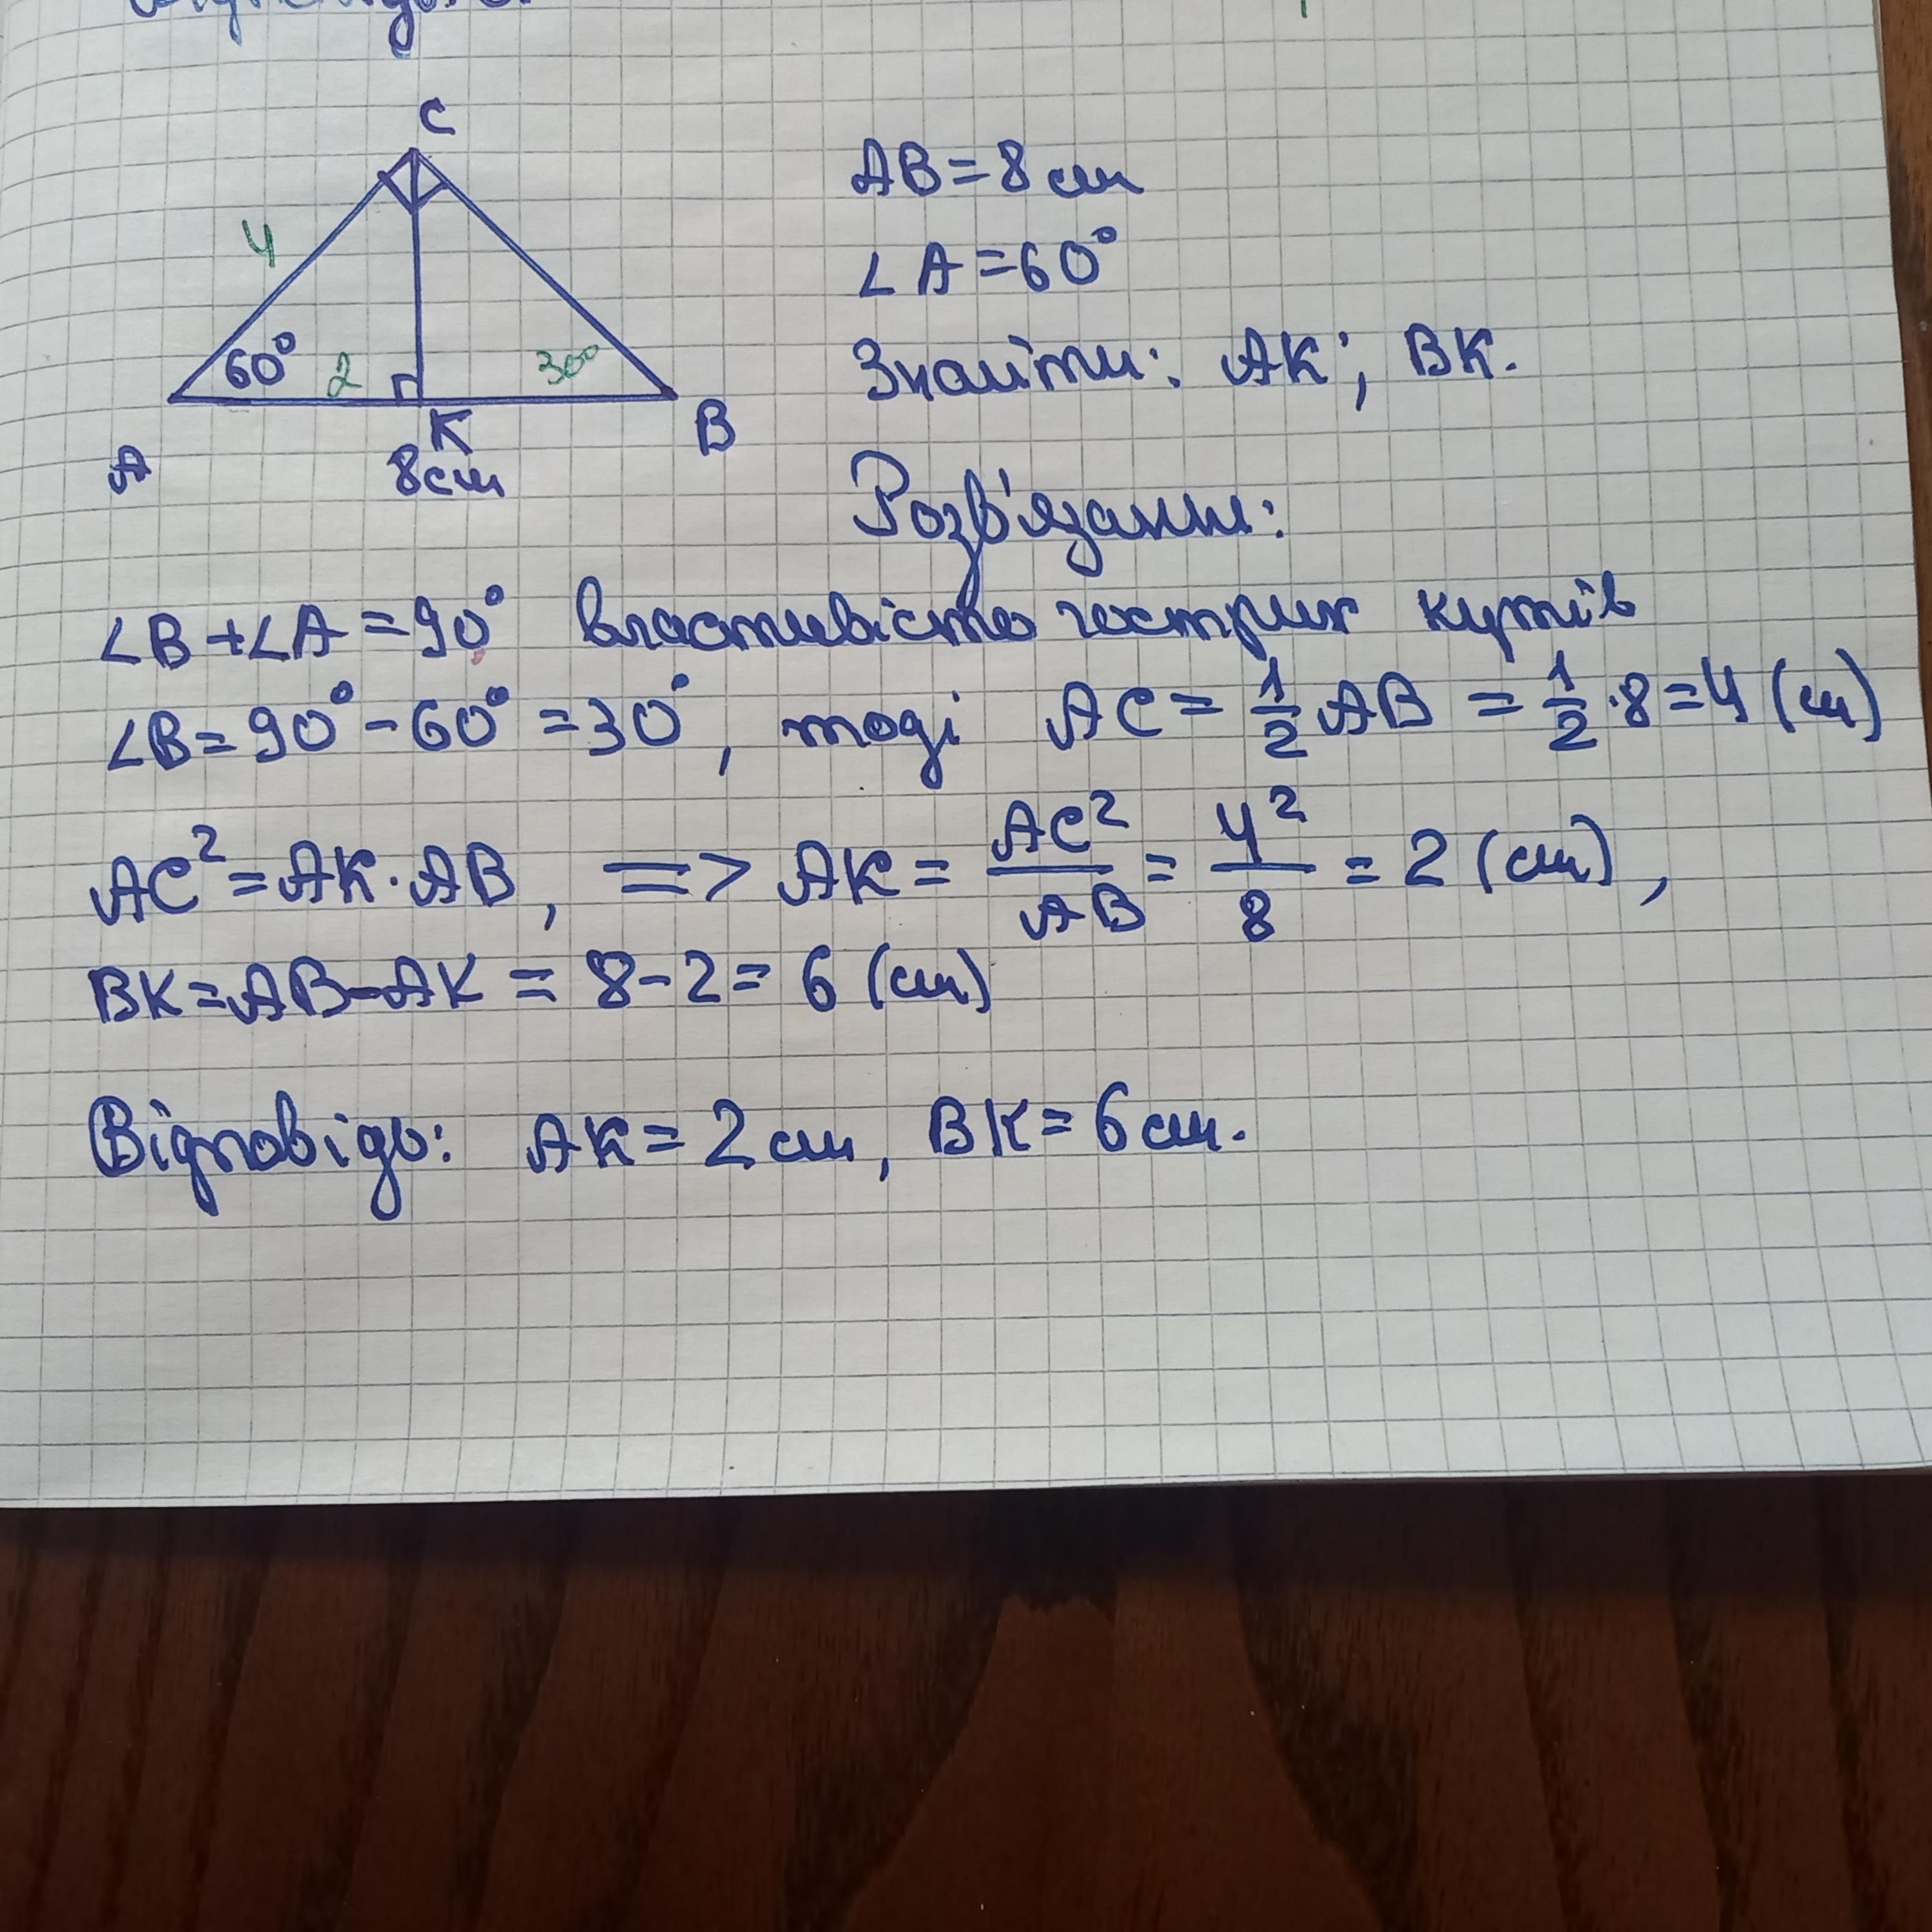 C
AB = 8 см
4
∠A = 60°
60° 2 30°
Знайти: AK; BK.
A K B
8 см
Розв'язання:
∠B + ∠A = 90° властивість гострих кутів
∠B = 90° - 60° = 30°, тоді AC = 1/2 AB = 1/2 · 8 = 4 (см)
AC² = AK · AB, => AK = AC²/AB = 4²/8 = 2 (см),
BK = AB - AK = 8 - 2 = 6 (см)
Відповідь: AK = 2 см, BK = 6 см.